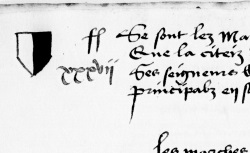 ff
xxxvii
Se sont lez Ma
Que la citeiz
Ses seigneurs E
principalz en s
les marches